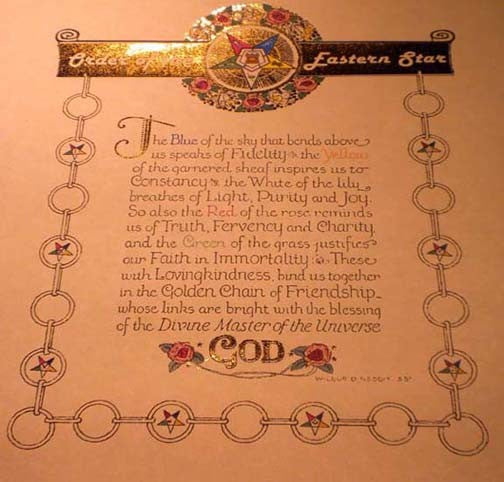 Order of the Eastern Star
The Blue of the sky that bends above
us speaks of Fidelity & the Yellow
of the garnered sheaf inspires us to
Constancy & the White of the lily
breathes of Light, Purity and Joy.
So also the Red of the rose reminds
us of Truth, Fervency and Charity,
and the Green of the grass justifies
our Faith in Immortality These
with Lovingkindness, bind us together
in the Golden Chain of Friendship
whose links are bright with the blessing
of the Divine Master of the Universe
GOD
Wilbur D. Nesbit